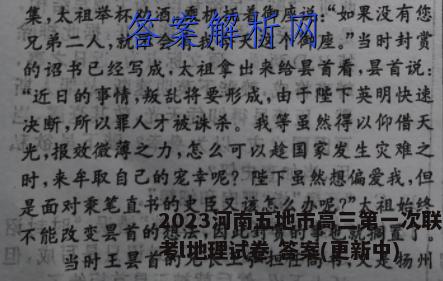 集,太祖举杯劝酒
御座说:“如果没有您
兄弟二人,就
御座。”当时封赏
的诏书已经写成,太祖拿出来给昙首看,昙首说:
“近日的事情,叛乱将要形成,由于陛下英明快速
决断,所以罪人才被诛杀。我等虽然得以仰借天
光,报效微薄之力,怎么可以趁国家发生灾难之
时,来牟取自己的宠幸呢?陛下虽然想偏爱我,但
是面对秉笔直书的史臣又该怎么办呢?”太祖始终
不能改变昙首的想法,因此封赏的事也就搁置了。
当时王昙首
扬州
答案解析网
2023河南五地市高三第一次联
考l地理试卷 答案(更新中)